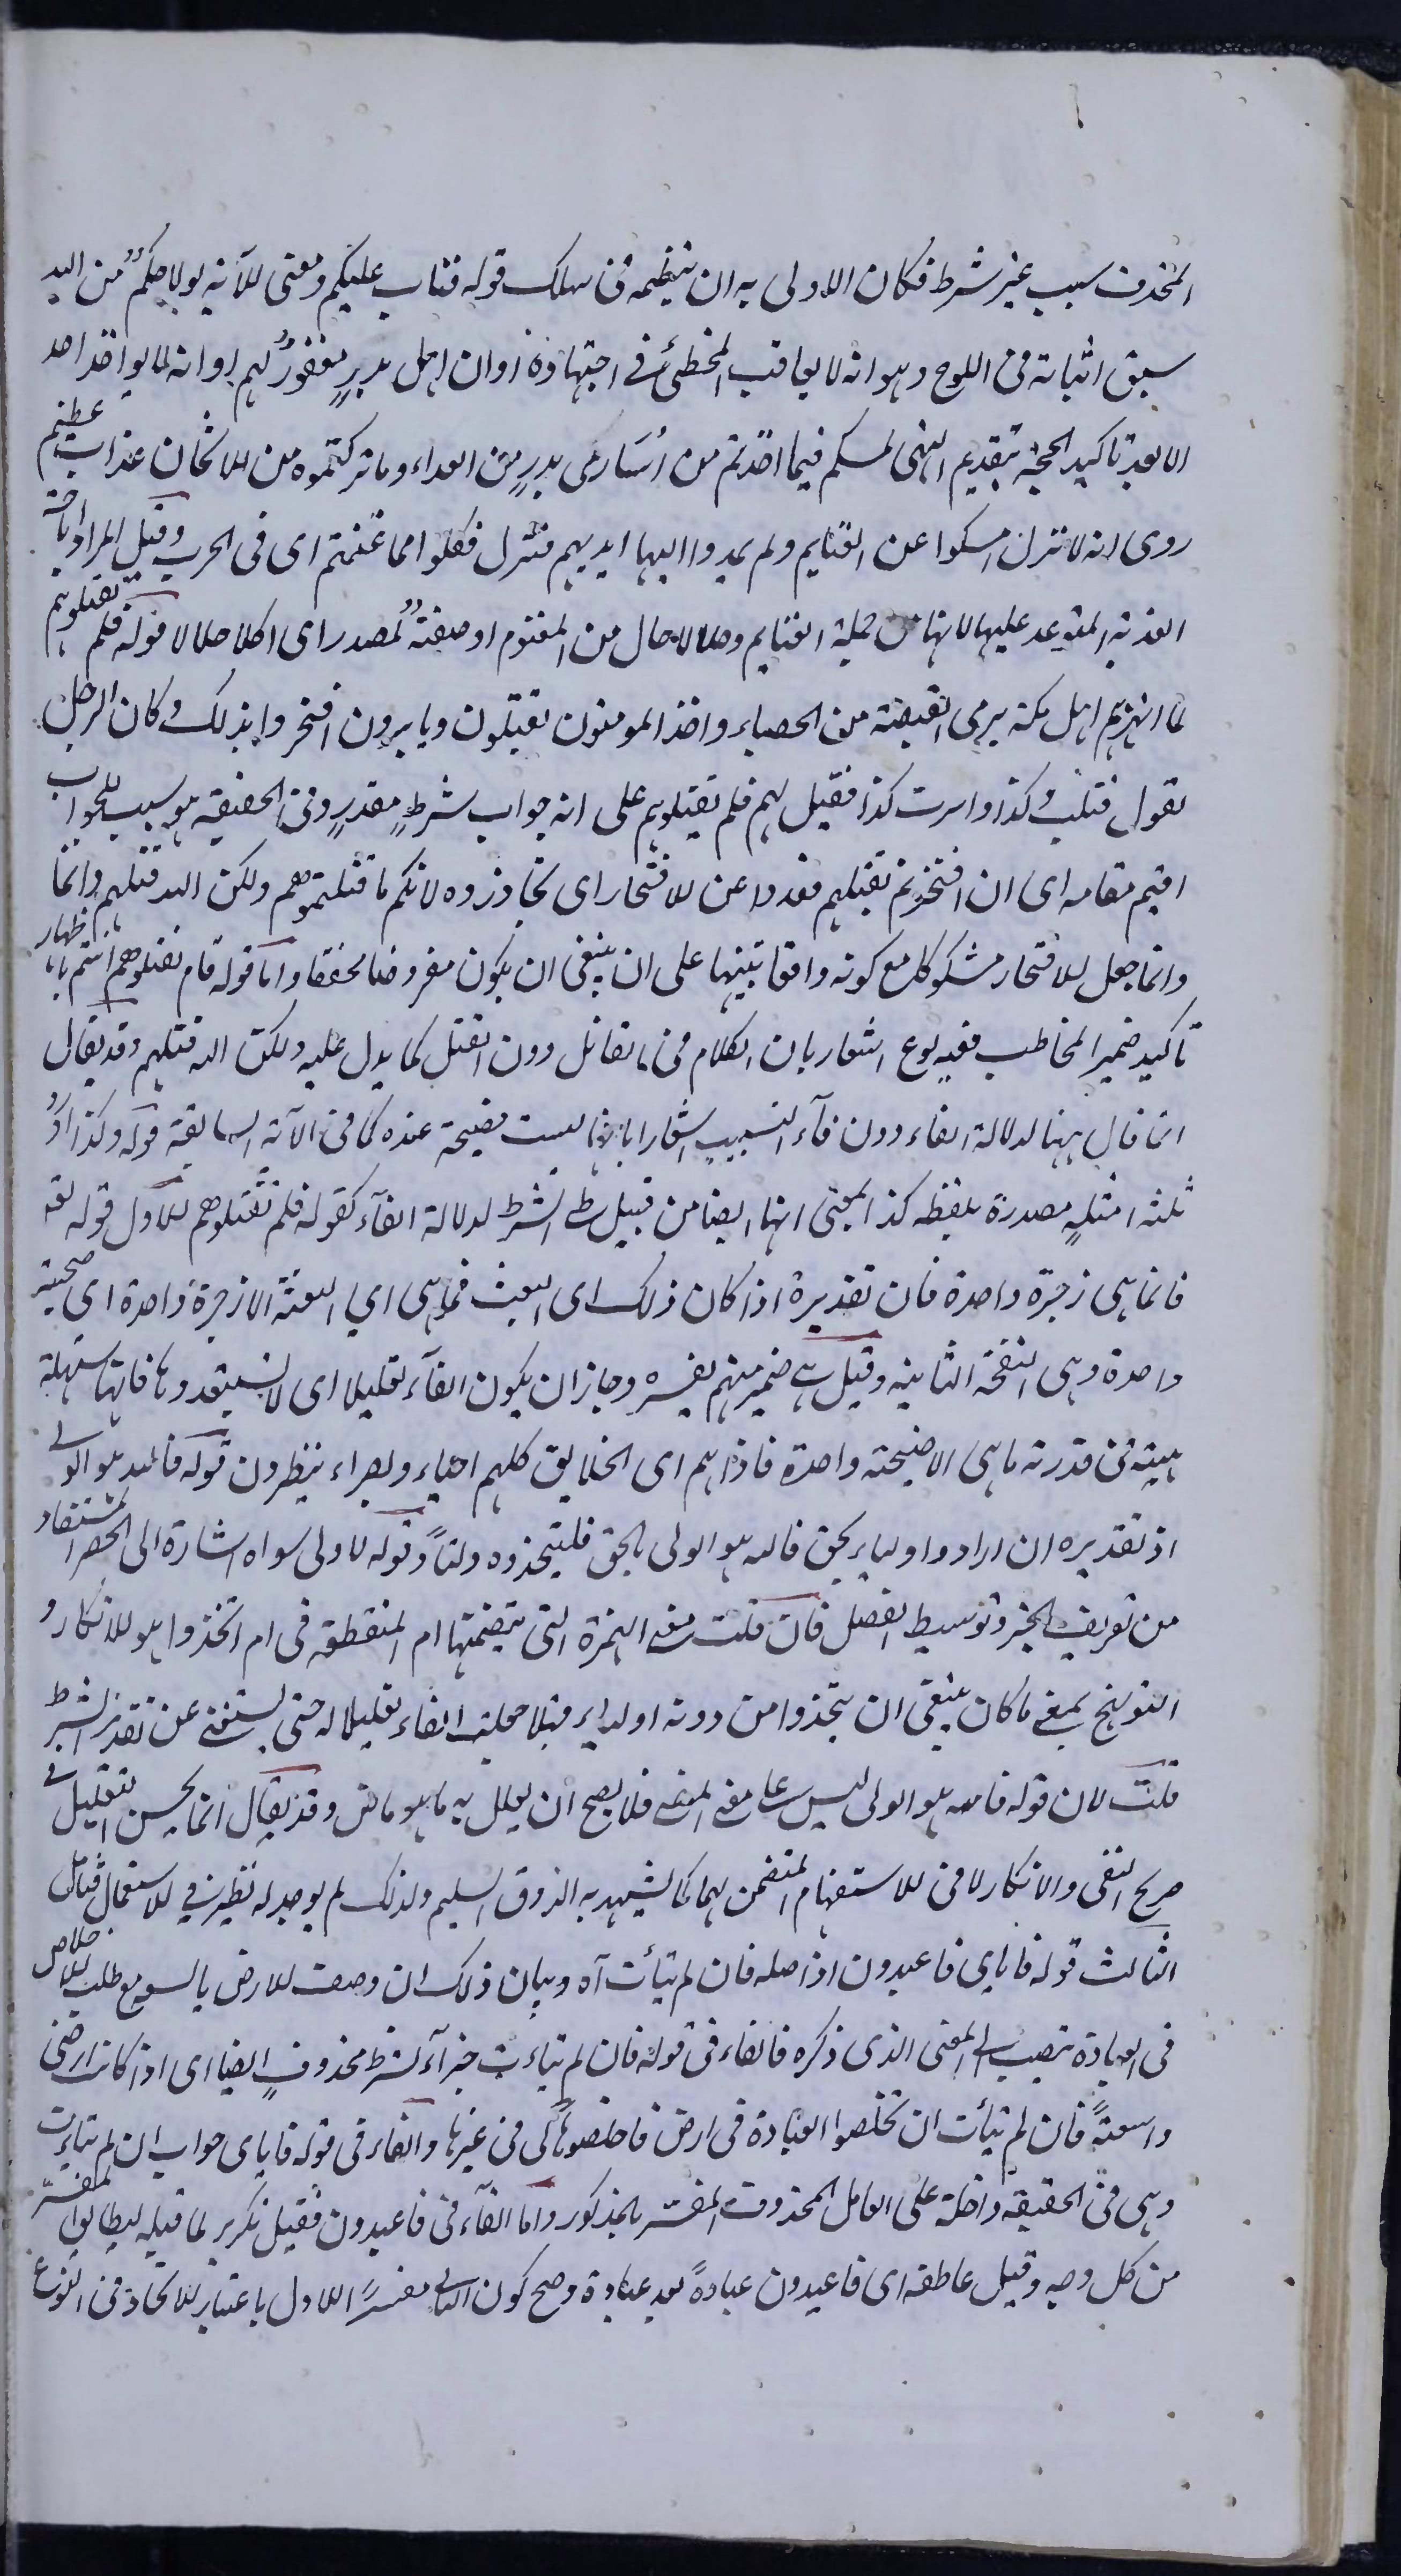 المحذوف سبب غير شرط فكان الاولى به ان ينظمه فى سلك قوله فتاب عليكم ومعنى الآية لولا حكمٌ من الله
سبق اثباته فى اللوح وهو انه لا يعاقب المخطئ فى اجتهاده او ان اهل بدرٍ مغفورٌ لهم او انه لا يواخذ احد
الا بعد تاكيد الحجة بتقديم النهى لمسكم فيما اخذتم من أسَارَى بدرٍ من الفداء وما تركتموه من الاثخان عذاب عظيم
روى انه لما نزل امسكوا عن الغنايم ولم يمدوا اليها ايديهم فنزل فكلوا مما غنمتم اى فى الحرب وقيل المراد اباحة
الفدية المتوعد عليها لانها من جملة الغنايم وحلالا حال من المغنوم او صفةٌ لمصدر اى اكلا حلالا قوله فلم تقتلوهم
لما انهزم اهل مكة برمى القبضة من الحصباء واخذ المومنون يقتلون وياسرون افتخروا بذلك وكان الرجل
يقول قتلتُ كذا واسرت كذا فقيل لهم فلم تقتلوهم على انه جواب شرطٍ مقدرٍ وفى الحقيقة هو سبب للجواب
اقيم مقامه اى ان افتخرتم بقتلهم فعدوا عن الافتخار اى تجاوزوه لانكم ما قتلتموهم ولكن الله قتلهم وانما
وانما جعل الافتخار مشكوكا مع كونه واقعا تنبيها على ان ينبغى ان يكون مفروضا لا محققا واما قوله فلم تقتلوهم انتم باظهار
تاكيد ضمير المخاطب ففيه نوع اشعار بان الكلام فى القاتل دون القتل كما يدل عليه ولكن الله قتلهم وقد يقال
انما قال ههنا لدلالة الفاء دون فآء التسبيب اشعارا بانها ليست فصيحة عنده كما فى الآية السابقة قوله وكذا اورد
ثلثة امثلةٍ مصدرة بلفظه كذا بمعنى انها ايضا من قبيل حذف الشرط لدلالة الفآء كقوله فلم تقتلوهم الاول قوله تعه
فانما هى زجرة واحدة فان تقديرة اذا كان ذلك اى البعث فما هى اي البعثة الا زجرة واحدة اى صيحة
واحدة وهى النفخة الثانية وقيل هى ضمير مبهم يفسره وجاز ان يكون الفآء تعليلا اى لا تستبعدوها فانها سهلة
هينة فى قدرته ما هى الا صيحة واحدة فاذا هم اى الخلايق كلهم احياء وبصراء ينظرون قوله فالله هو الولى
اذ تقديره ان ارادوا اولياء بحق فالله هو الولى بالحق فليتخذوه وليًا وقوله لا ولى سواه اشارة الى الحصر المستفاد
من تعريف الخبر وتوسيط الفصل فان قلت معنى الهمزة التى يتضمنها ام المنقطعة فى ام اتخذوا هو الانكار و
التوبيخ بمعنى ما كان ينبغى ان يتخذوا من دونه اولياء فهلا جعلت الفاء تعليلا له حتى يستغنى عن تقدير الشرط
قلت لان قوله فالله هو الولى ليس على معنى المنفى فلا يصح ان يعلل به ما هو ماض وقد يقال انما يحسن التعليل فى
صريح النفى والانكار لا فى الاستفهام المتضمن لهما كما يشهد به الذوق السليم ولذلك لم يوجد له نظير فى الاستعمال فتامل
الثالث قوله فاياى فاعبدون اذ اصله فان لم يتأت آه وبيان ذلك ان وصف الارض بالسعة مع طلب الاخلاص
فى العبادة يتصبب الى المعنى الذى ذكره فالفاء فى قوله فان لم يتأت جزآء شرط محذوفٍ ايضا اى اذا كان ارضى
واسعةً فان لم يتأت ان تخلصوا العبادة فى ارض فاخلصوها لى فى غيرها والفاء فى قوله فاياى جواب ان لم يتأت
وهى فى الحقيقة داخلة على العامل المحذوف المفسر بالمذكور واما الفآء فى فاعبدون فقيل تكرير لما قبله ليطابق المفسّر
من كل وجه وقيل عاطفة اى فاعبدون عبادةً بعد عبادة وصح كون الثانى مفسرًا للاول باعتبار الاتحاد فى النوع